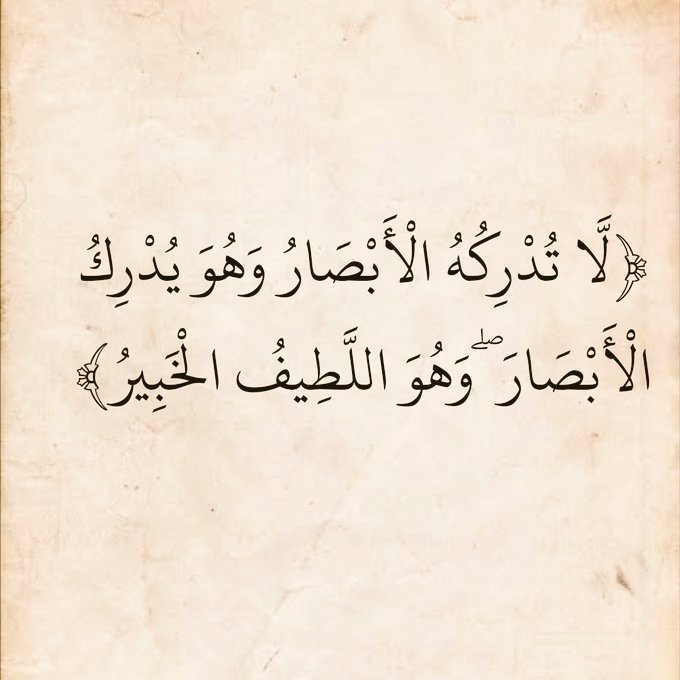 ﴿لَّا تُدْرِكُهُ الْأَبْصَارُ وَهُوَ يُدْرِكُ
الْأَبْصَارَ ۖ وَهُوَ اللَّطِيفُ الْخَبِيرُ﴾